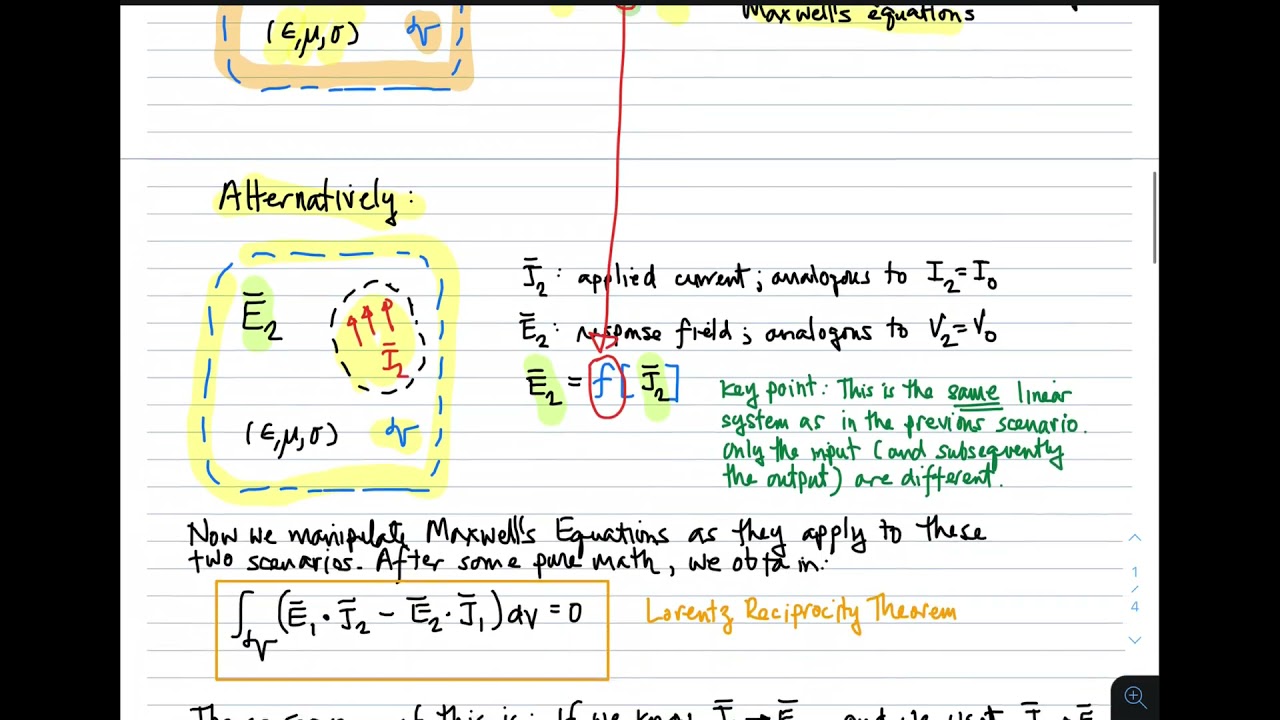 Maxwell's equations
(ϵ,μ,σ) 𝒱
Alternatively:
E̅₂
J̅₂
(ϵ,μ,σ) 𝒱
J̅₂: applied current; analogous to I₂=I₀
E̅₂: response field; analogous to V₂=V₀
E̅₂ = f[J̅₂]
Key point: This is the same linear
system as in the previous scenario.
Only the input (and subsequently
the output) are different.
Now we manipulate Maxwell's Equations as they apply to these
two scenarios. After some pure math, we obtain:
∫𝒱 (E̅₁ · J̅₂ - E̅₂ · J̅₁) dv = 0
Lorentz Reciprocity Theorem
1
/
4
of this is: If we know J̅ → E̅